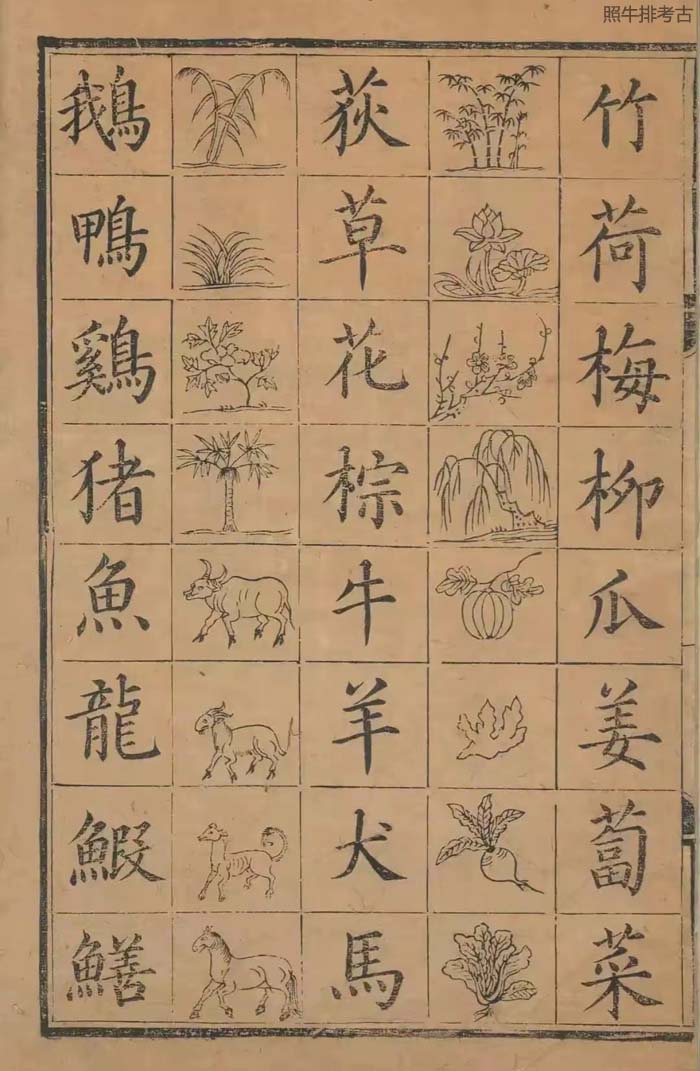 照牛排考古
竹荷梅柳瓜姜蔔菜
荻草花棕牛羊犬馬
鵝鴨鷄猪魚龍鰕鱔